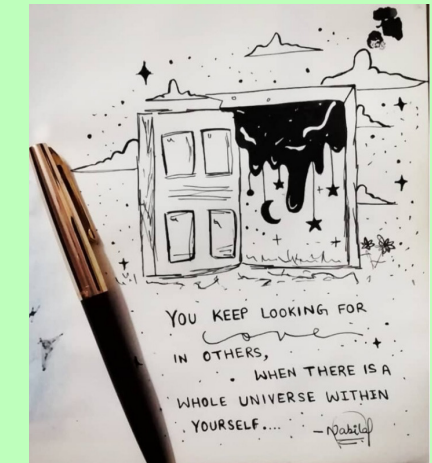 YOU KEEP LOOKING FOR
love
IN OTHERS,
WHEN THERE IS A
WHOLE UNIVERSE WITHIN
YOURSELF....
-Nabila